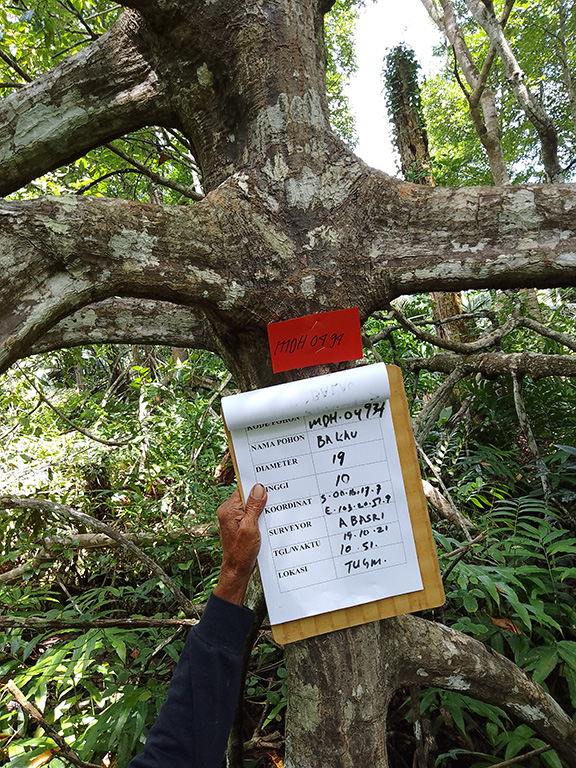 MDH 0499
KODE POHON MDH.04934
NAMA POHON BALAU
DIAMETER 19
TINGGI 10
KOORDINAT S.00.16.17.7
E.103.20.57.9
SURVEYOR ABASRI
TGL/WAKTU 19.10.21
10.51.
LOKASI TUGM.